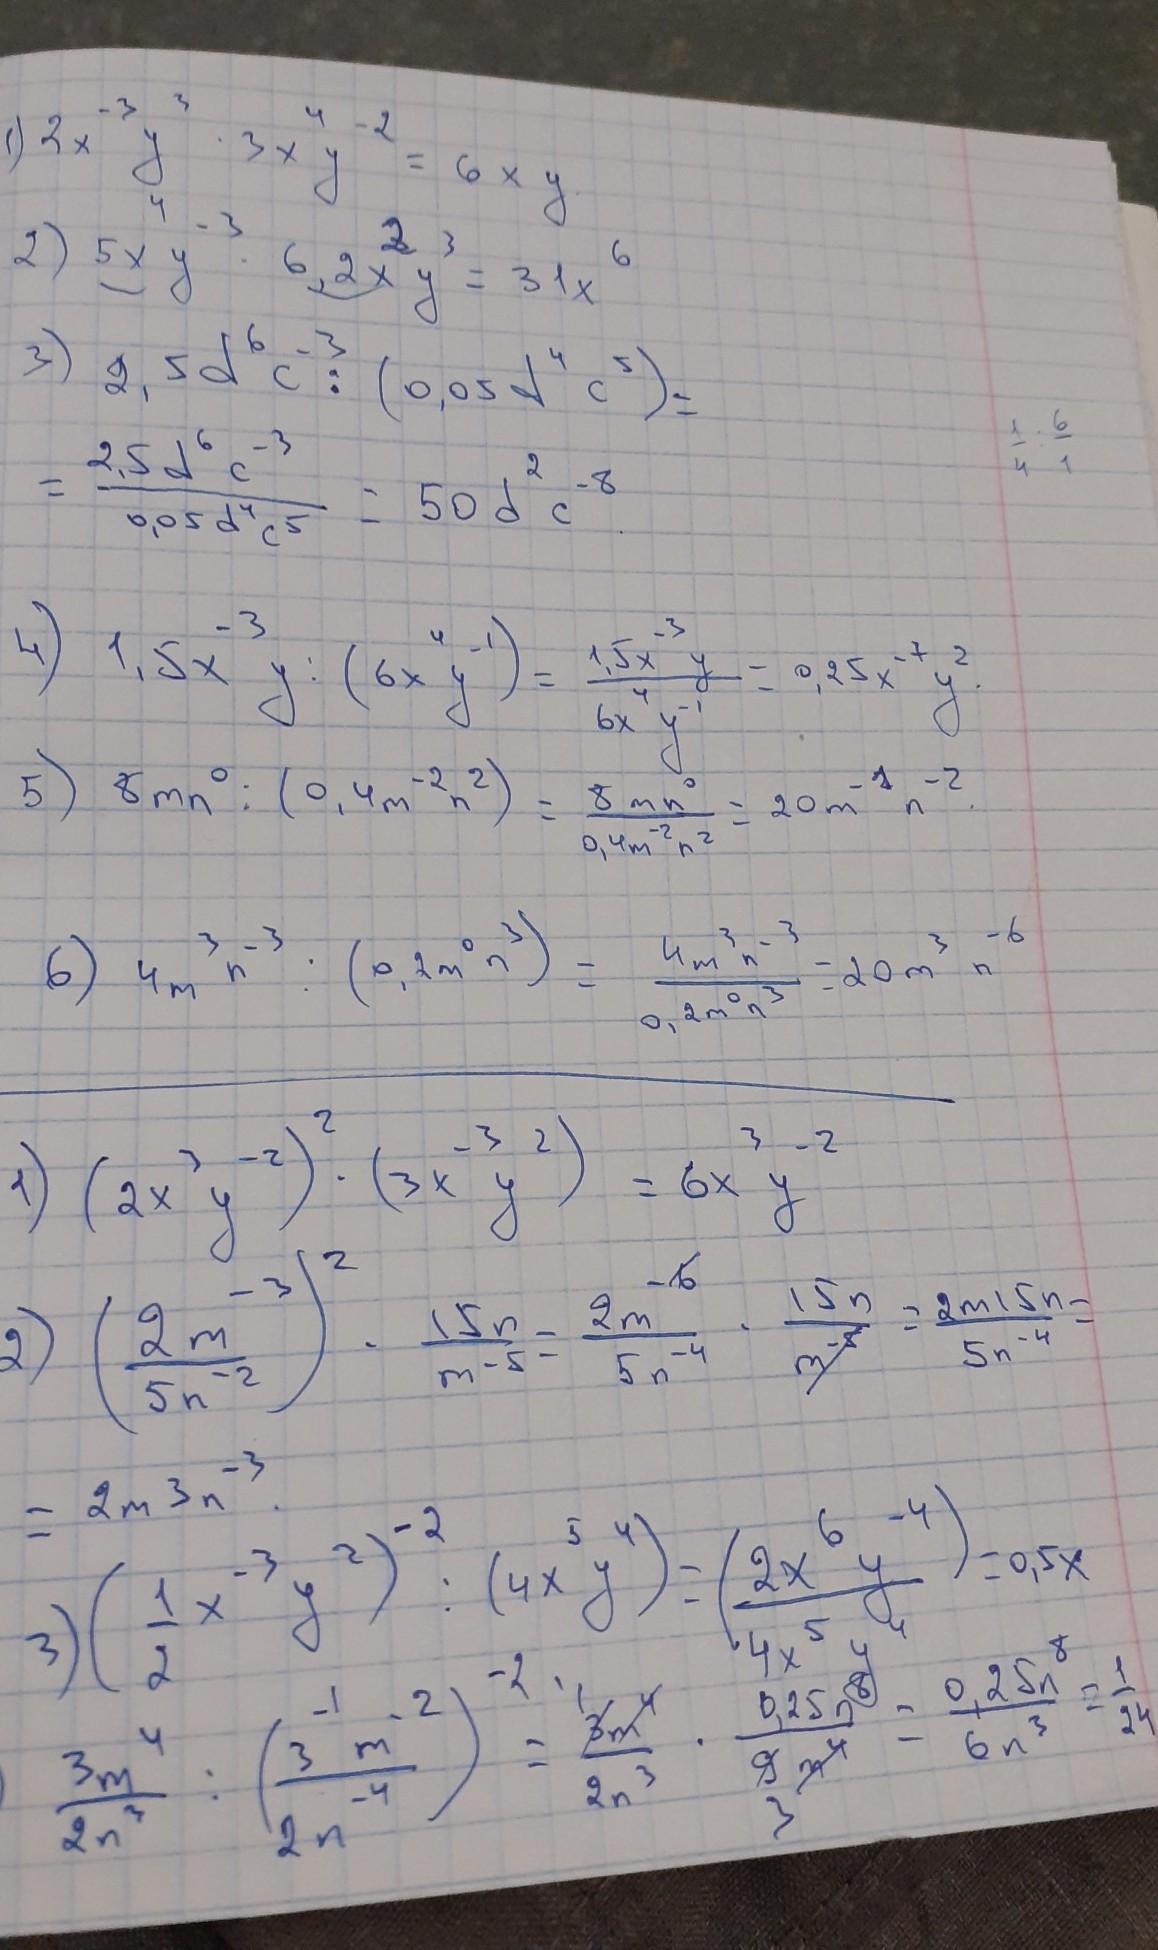 1) 2x⁻³y³ · 3x⁴y⁻² = 6xy.
2) 5x⁴y⁻³ · 6,2x²y³ = 31x⁶
3) 2,5d⁶c⁻³ : (0,05d⁴c⁵) =
1/4 · 6/1
= 2,5d⁶c⁻³/0,05d⁴c⁵ = 50d²c⁻⁸.
4) 1,5x⁻³y : (6x⁴y⁻¹) = 1,5x⁻³y/6x⁴y⁻¹ = 0,25x⁻⁷y².
5) 8mn⁰ : (0,4m⁻²n²) = 8mn⁰/0,4m⁻²n² = 20m⁻¹n⁻².
6) 4m³n⁻³ : (0,2m⁰n³) = 4m³n⁻³/0,2m⁰n³ = 20m³n⁻⁶
1) (2x³y⁻²)² · (3x⁻³y²) = 6x³y⁻²
2) (2m⁻³/5n⁻²)² · 15n/m⁻⁵ = 2m⁻⁶/5n⁻⁴ · 15n/m⁻⁵ = 2m15n/5n⁻⁴ =
= 2m3n⁻³.
3) (1/2x⁻³y²)⁻² : (4x⁵y⁴) = (2x⁶y⁻⁴/4x⁵y⁴) = 0,5x
) 3m⁴/2n³ : (3⁻¹m⁻²/2n⁻⁴)⁻² = 3m⁴/2n³ · 0,25n⁸/9m⁴ = 0,25n⁸/6n³ = 1/24
1
3